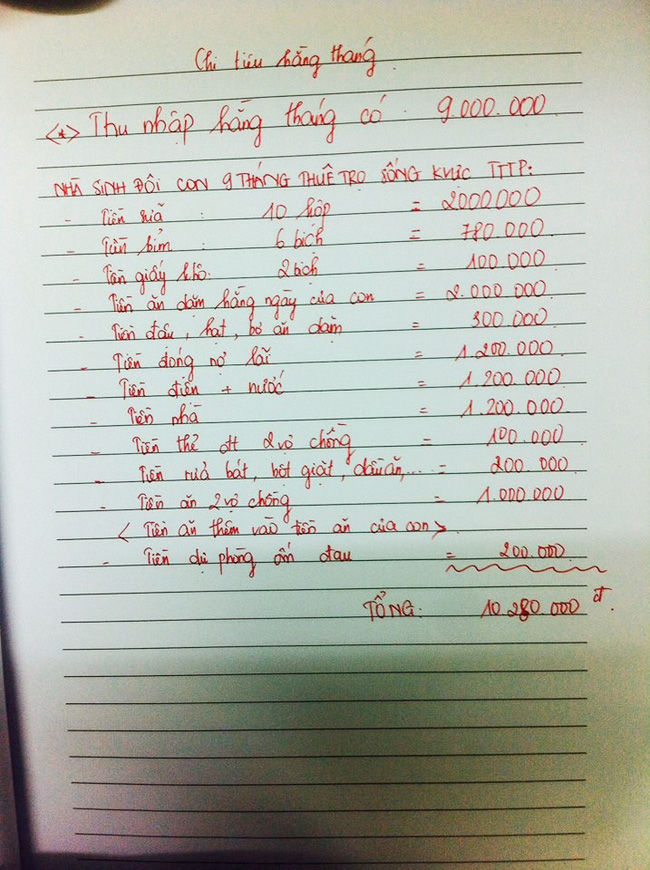 Chi tiêu hằng tháng
<*> Thu nhập hằng tháng có : 9.000.000
NHÀ SINH ĐÔI CON 9 THÁNG THUÊ TRỌ SỐNG KHU VỰC TTTP:
- Tiền sữa : 10 hộp = 2000000
- Tiền bỉm : 6 bịch = 780.000
- Tiền giấy khô: 2 bịch = 100.000
- Tiền ăn dặm hằng ngày của con = 2.000.000
- Tiền đậu, hạt, bơ ăn dặm = 300.000
- Tiền đóng nợ lãi = 1.200.000
- Tiền điện + nước = 1.200.000
- Tiền nhà = 1.200.000
- Tiền thẻ đt 2 vợ chồng = 100.000
- Tiền rửa bát, bột giặt, dầu ăn,... = 200.000
- Tiền ăn 2 vợ chồng = 1.000.000
< Tiền ăn thêm vào tiền ăn của con >
- Tiền dự phòng ốm đau = 200.000
TỔNG: 10.280.000 đ